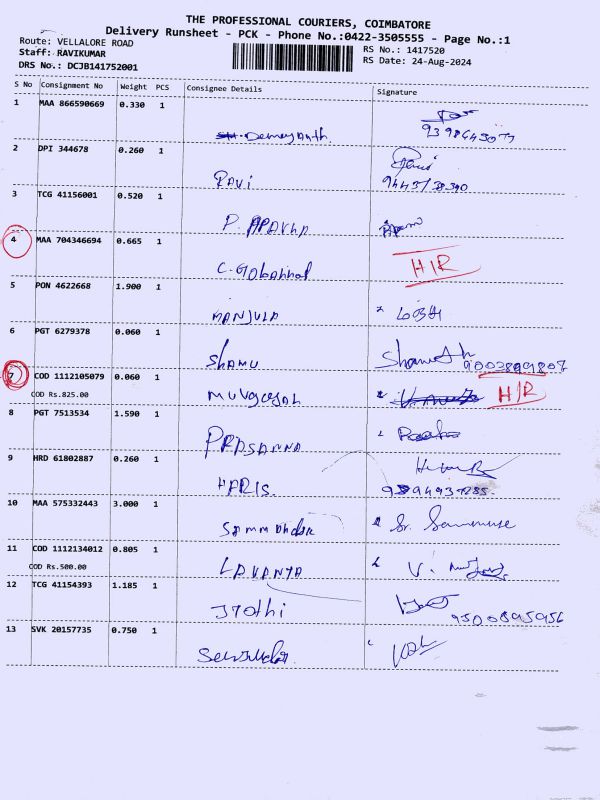 THE PROFESSIONAL COURIERS, COIMBATORE
Delivery Runsheet - PCK - Phone No.:0422-3505555 - Page No.:1
Route: VELLALORE ROAD
RS No.: 1417520
Staff: RAVIKUMAR
RS Date: 24-Aug-2024
DRS No.: DCJB141752001
S No Consignment No Weight PCS Consignee Details Signature
1 MAA 866590669 0.330 1
2 DPI 344678 0.260 1
RAVI
3 TCG 41156001 0.520 1
P.
4 MAA 704346694 0.665 1
C. H/R
5 PON 4622668 1.900 1
MANJULA
6 PGT 6279378 0.060 1
SHAMU 9002899807
7 COD 1112105079 0.060 1
COD Rs.825.00
H/R
8 PGT 7513534 1.590 1
PRASANNA
9 HRD 61802887 0.260 1
HARIS.
10 MAA 575332443 3.000 1
11 COD 1112134012 0.805 1
COD Rs.500.00
LAVANYA V.
12 TCG 41154393 1.185 1
Jyothi 9500895956
13 SVK 20157735 0.750 1